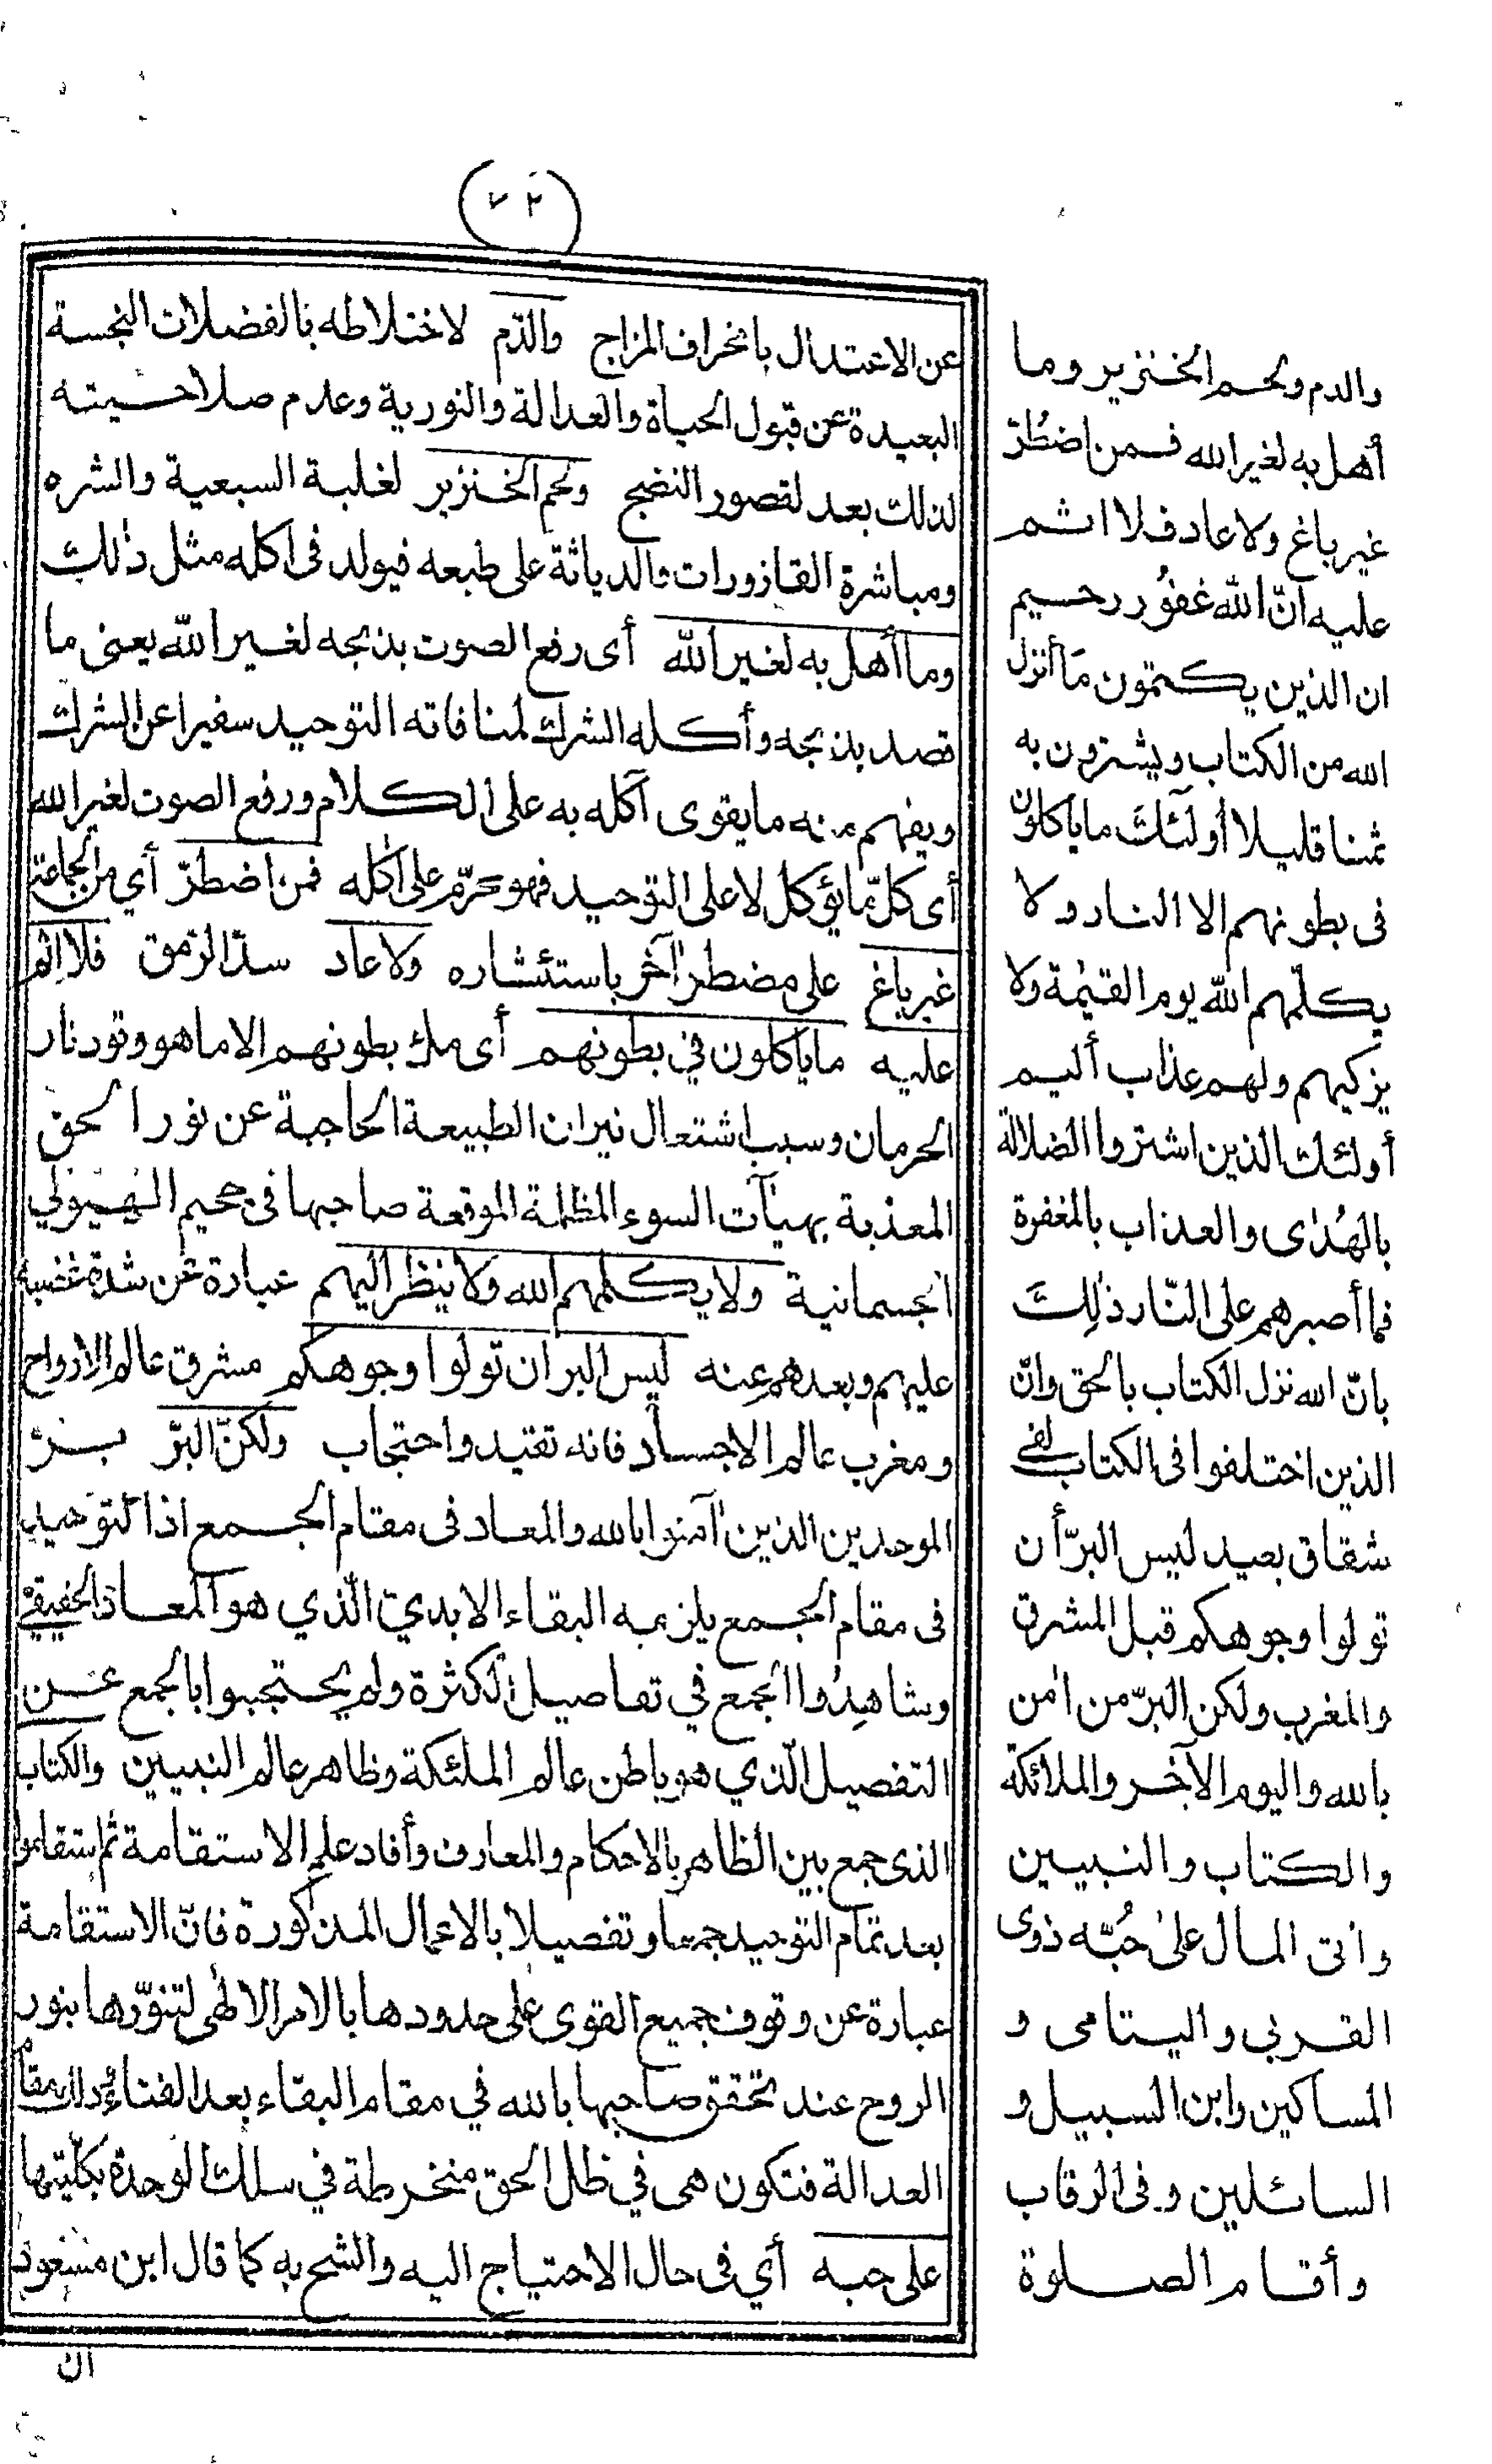 والدم ولحم الخنزير وما
أهل به لغير الله فمن اضطرّ
غير باغ ولا عاد فلا اثم
عليه انّ الله غفور رحيم
ان الذين يكتمون ما أنزل
الله من الكتاب ويشترون به
ثمنا قليلا أولئك ما يأكلون
فى بطونهم الا النار ولا
يكلّمهم الله يوم القيٰمة ولا
يزكيهم ولهم عذاب أليم
أولئك الذين اشتروا الضلالة
بالهُدٰى والعذاب بالمغفرة
فما أصبرهم على النّار ذٰلك
بانّ الله نزل الكتاب بالحق وانّ
الذين اختلفوا فى الكتاب لفى
شقاق بعيد ليس البرّ أن
تولوا وجوهكم قبل المشرق
والمغرب ولكن البرّ من اٰمن
بالله واليوم الآخر والملائكة
والكتاب والنبيين
واٰتى المال علىٰ حُبّه ذوى
القربى واليتامى و
المساكين وابن السبيل و
السائلين وفى الرقاب
وأقام الصلوة
عن الاعتدال بانحراف المزاج والدّم لاختلاطه بالفضلات النجسة
البعيدة عن قبول الحياة والعدالة والنورية وعدم صلاحيته
لذلك بعد لقصور النضج ولحم الخنزير لغلبة السبعية والشره
ومباشرة القاذورات والدياثة على طبعه فيولد فى اكله مثل ذٰلك
وما أهل به لغير الله أى رفع الصوت بذبحه لغير الله يعنى ما
قصد بذبحه وأكله الشرك لمنافاته التوحيد سفيرا عن الشرك
ويفهم منه ما يقوى آكله به على الكلام ورفع الصوت لغير الله
أى كلّ ما يؤكل لا على التوحيد فهو محرّم على اٰكله فمن اضطرّ أي من الجماعة
غير باغ على مضطر اٰخر باستئثاره ولا عاد سدّ الرّمق فلا اثم
عليه ما يأكلون في بطونهم أى ملء بطونهم الا ما هو وقود نار
الحرمان وسبب اشتعال نيران الطبيعة الحاجبة عن نور الحق
المعذبة بهيآت السوء المظلمة الموقعة صاحبها فى جحيم الهيولي
الجسمانية ولا يكلمهم الله ولا ينظر اليهم عبارة عن شدة غضبه
عليهم وبعدهم عنه ليس البر ان تولوا وجوهكم مشرق عالم الارواح
ومغرب عالم الاجساد فانه تقيد واحتجاب ولكنّ البرّ برّ
الموحدين الذين اٰمنوا بالله والمعاد فى مقام الجمع اذ التوحيد
فى مقام الجمع يلزمه البقاء الابديّ الّذي هو المعاد الحقيقي
وشاهدُوا الجمع في تفاصيل الكثرة ولم يحتجبوا بالجمع عن
التفصيل الّذي هو باطن عالم الملئكة وظاهر عالم النبيين والكتاب
الذى جمع بين الظاهر بالاحكام والمعارف وأفاد علم الاستقامة ثم استقاموا
بعد تمام التوحيد جمعا وتفصيلا بالاعمال المذكورة فانّ الاستقامة
عبارة عن وقوف جميع القوى على حدودها بالامر الالٰهى لتنوّرها بنور
الروح عند تحقق صاحبها بالله في مقام البقاء بعد الفناء وذلك مقام
العدالة فتكون هى في ظل الحق منخرطة في سلك الوحدة بكليّتها
على حبه أي فى حال الاحتياج اليه والشح به كما قال ابن مسعود
ان